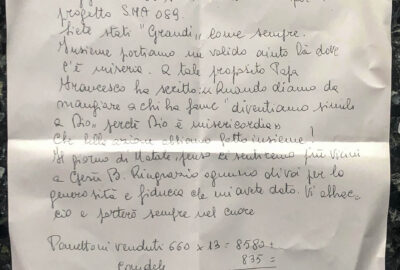 progetto SMA 089.
Siete stati "Grandi", come sempre.
Insieme portiamo un valido aiuto là dove
c'è miseria. A tale proposito Papa
Francesco ha scritto: «Quando diamo da
mangiare a chi ha fame "diventiamo simili
a Dio, perché Dio è misericordia»
Che bella azione abbiamo fatto insieme!
Il giorno di Natale, penso ci sentiremo più vicini
a Gesù B. Ringrazio ognuno di voi per la
generosità e fiducia che mi avete dato. Vi abbrac-
cio e porterò sempre nel cuore
Panettoni venduti 660 x 13 = 8580 =
candele 835 =